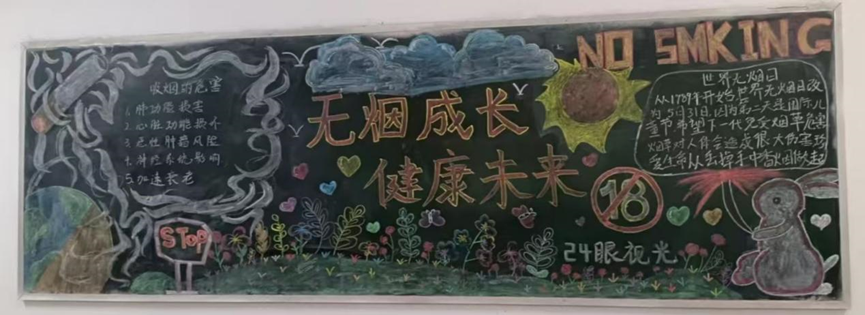 吸烟的危害
1.肺功能损害
2.心脏功能损个
3.恶性肿瘤风险
4.神经系统影响
5.加速衰老
STOP
无烟成长
健康未来
NO SMKING
世界无烟日
从1989年开始,世界无烟日改
为5月31日,因为第二天是国际儿
童节,希望下一代免受烟草危害
烟草对人体会造成很大伤害,珍
爱生命从丢掉手中香烟做起
18
24眼视光